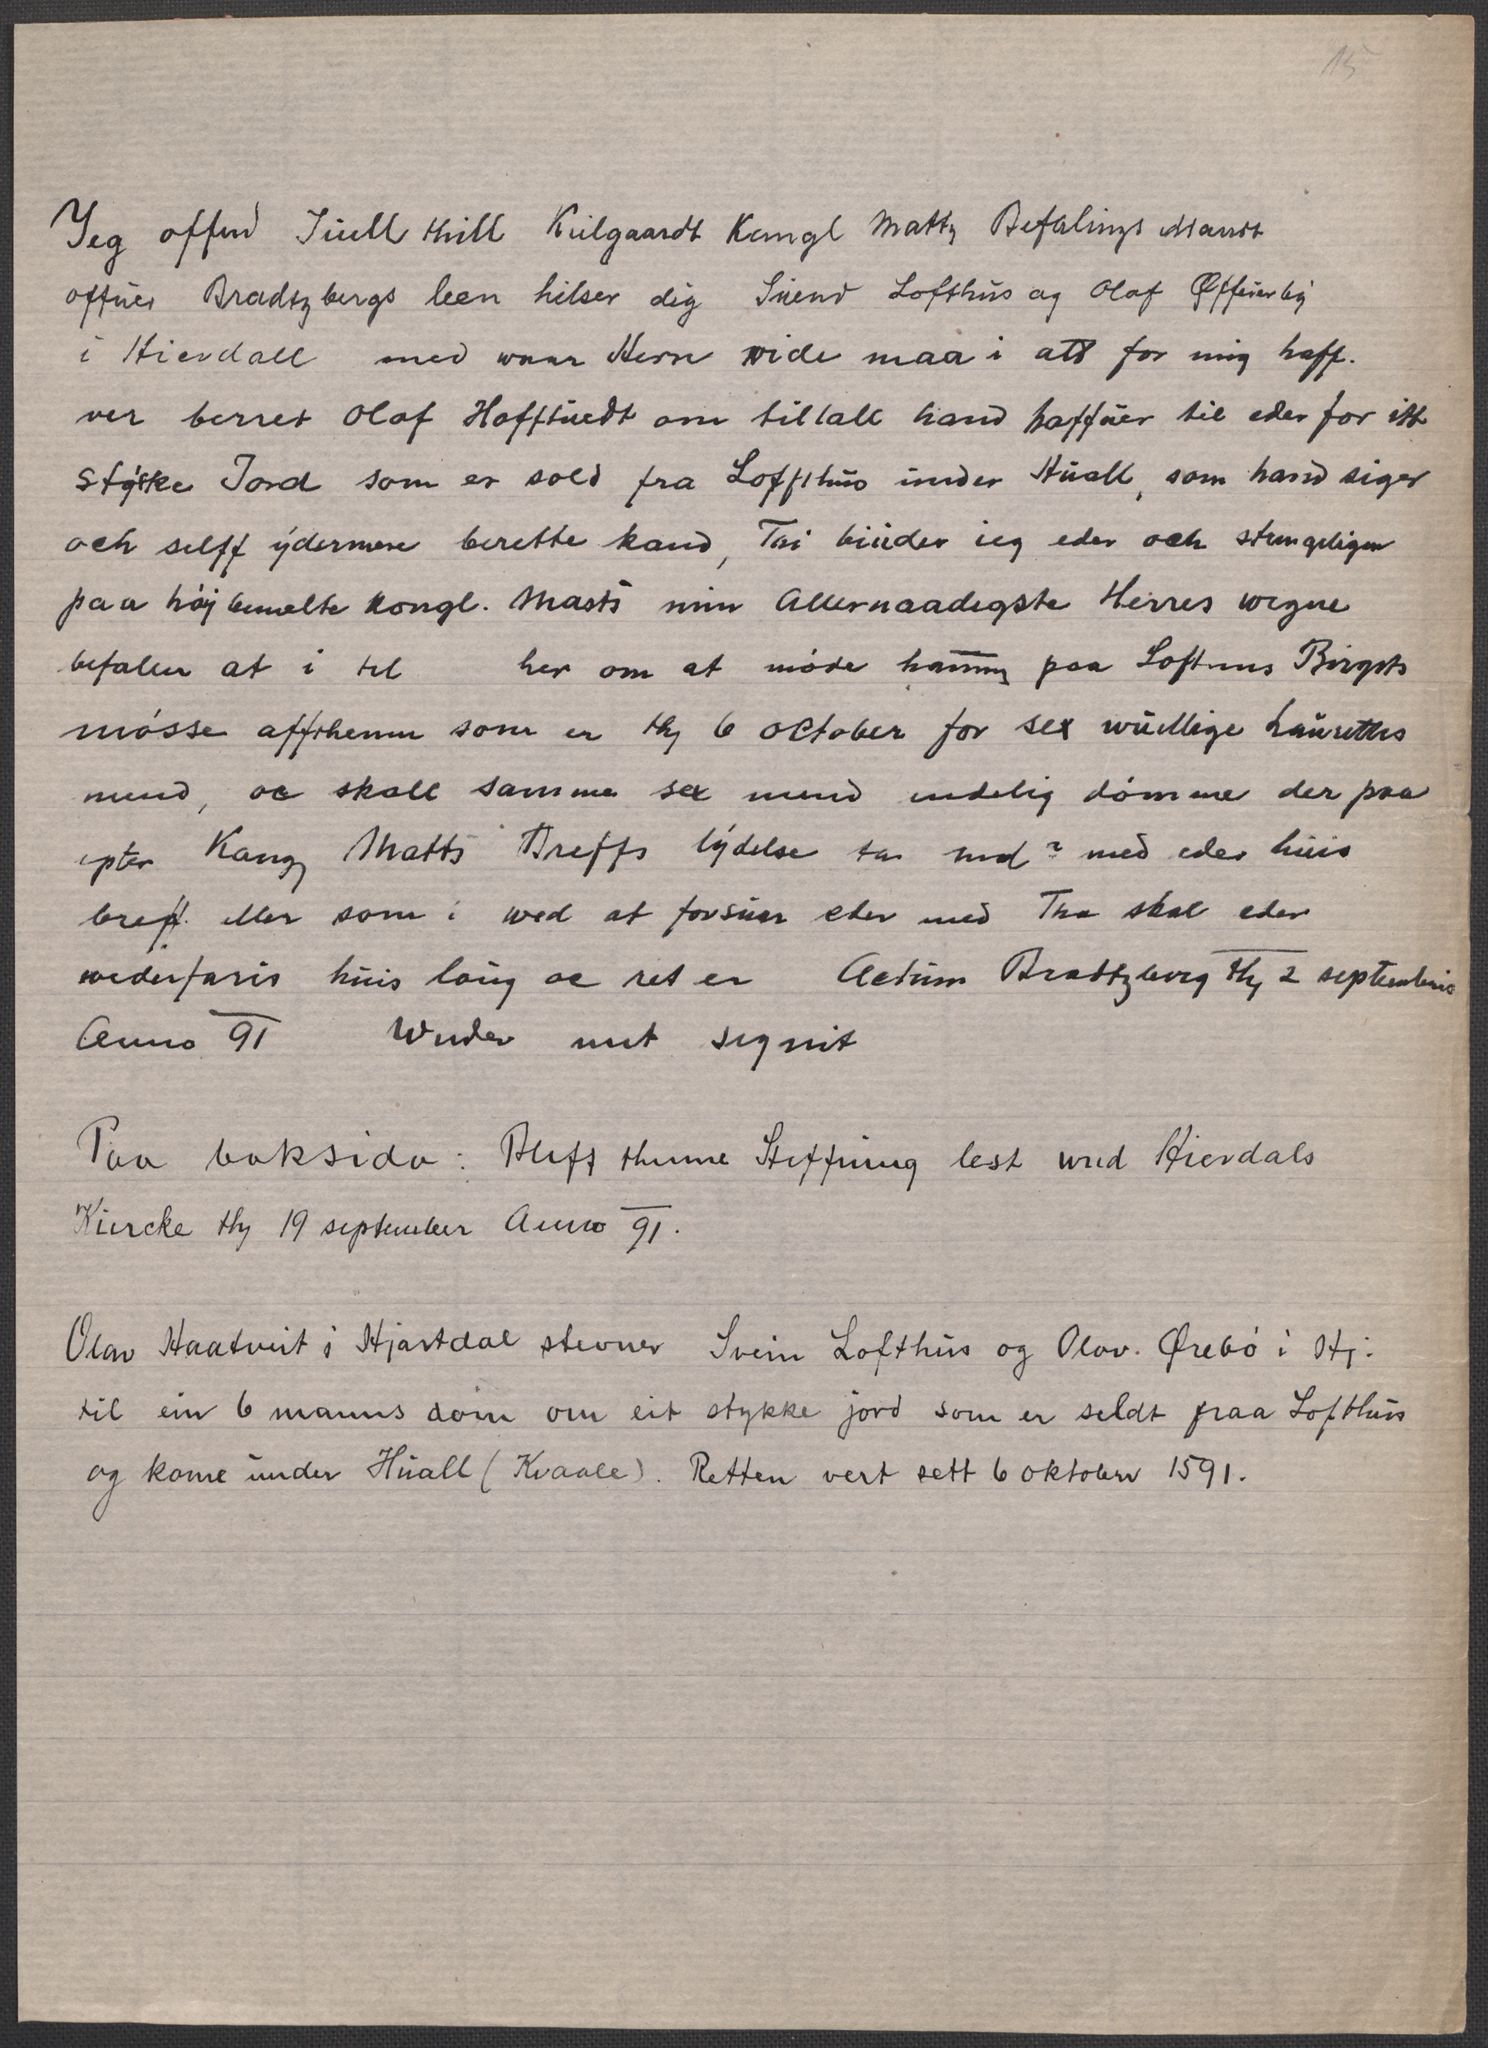 15
Jeg offud Juell thill Kiilgaardt Kongl Matts Befalings Mandt
offuer Bradtzbergs leen hilser dig Suend Lofthus og Olof Øffuerby
i Hierdall med waar Herre wide maa i att for mig haff-
ver berret Olof Hofftuedt om tiltall hand haffuer til eder for itt
Stycke Jord som er sold fra Loffthus under Huall, som hand siger
och selff ydermere berette kand, Thi biuder ieg eder och strengeligen
paa høj bemelte Kongl. Masts min Allernaadegste Herres wegne
befalen at i til her om at møde hannem paa Lofthus Birgets
møsse affthenn som er thj 6 October for sex wuillige laurettes
mend, oc skall samme sex mend endelig dømme der paa
epter Kong Matts Breffs lydelse ta med? med eder huis
breff eller som i wed at forsuar eder med Tha skal eder
wederfaris huis loug oc ret er Actum Bradtzberg thj 2 septembris
Anno 91 Wnder mit segnit
Paa baksida: Bleff thenne Steffning lest wed Hierdals
Kiercke thj 19 september Anno 91.
Olav Haatveit i Hjartdal stevner Svein Lofthus og Olav Ørebø i Hj.
til ein 6 manns dom om eit stykke jord som er seldt fraa Lofthus
og kome under Huall (Kvaale). Retten vert sett 6 oktober 1591.